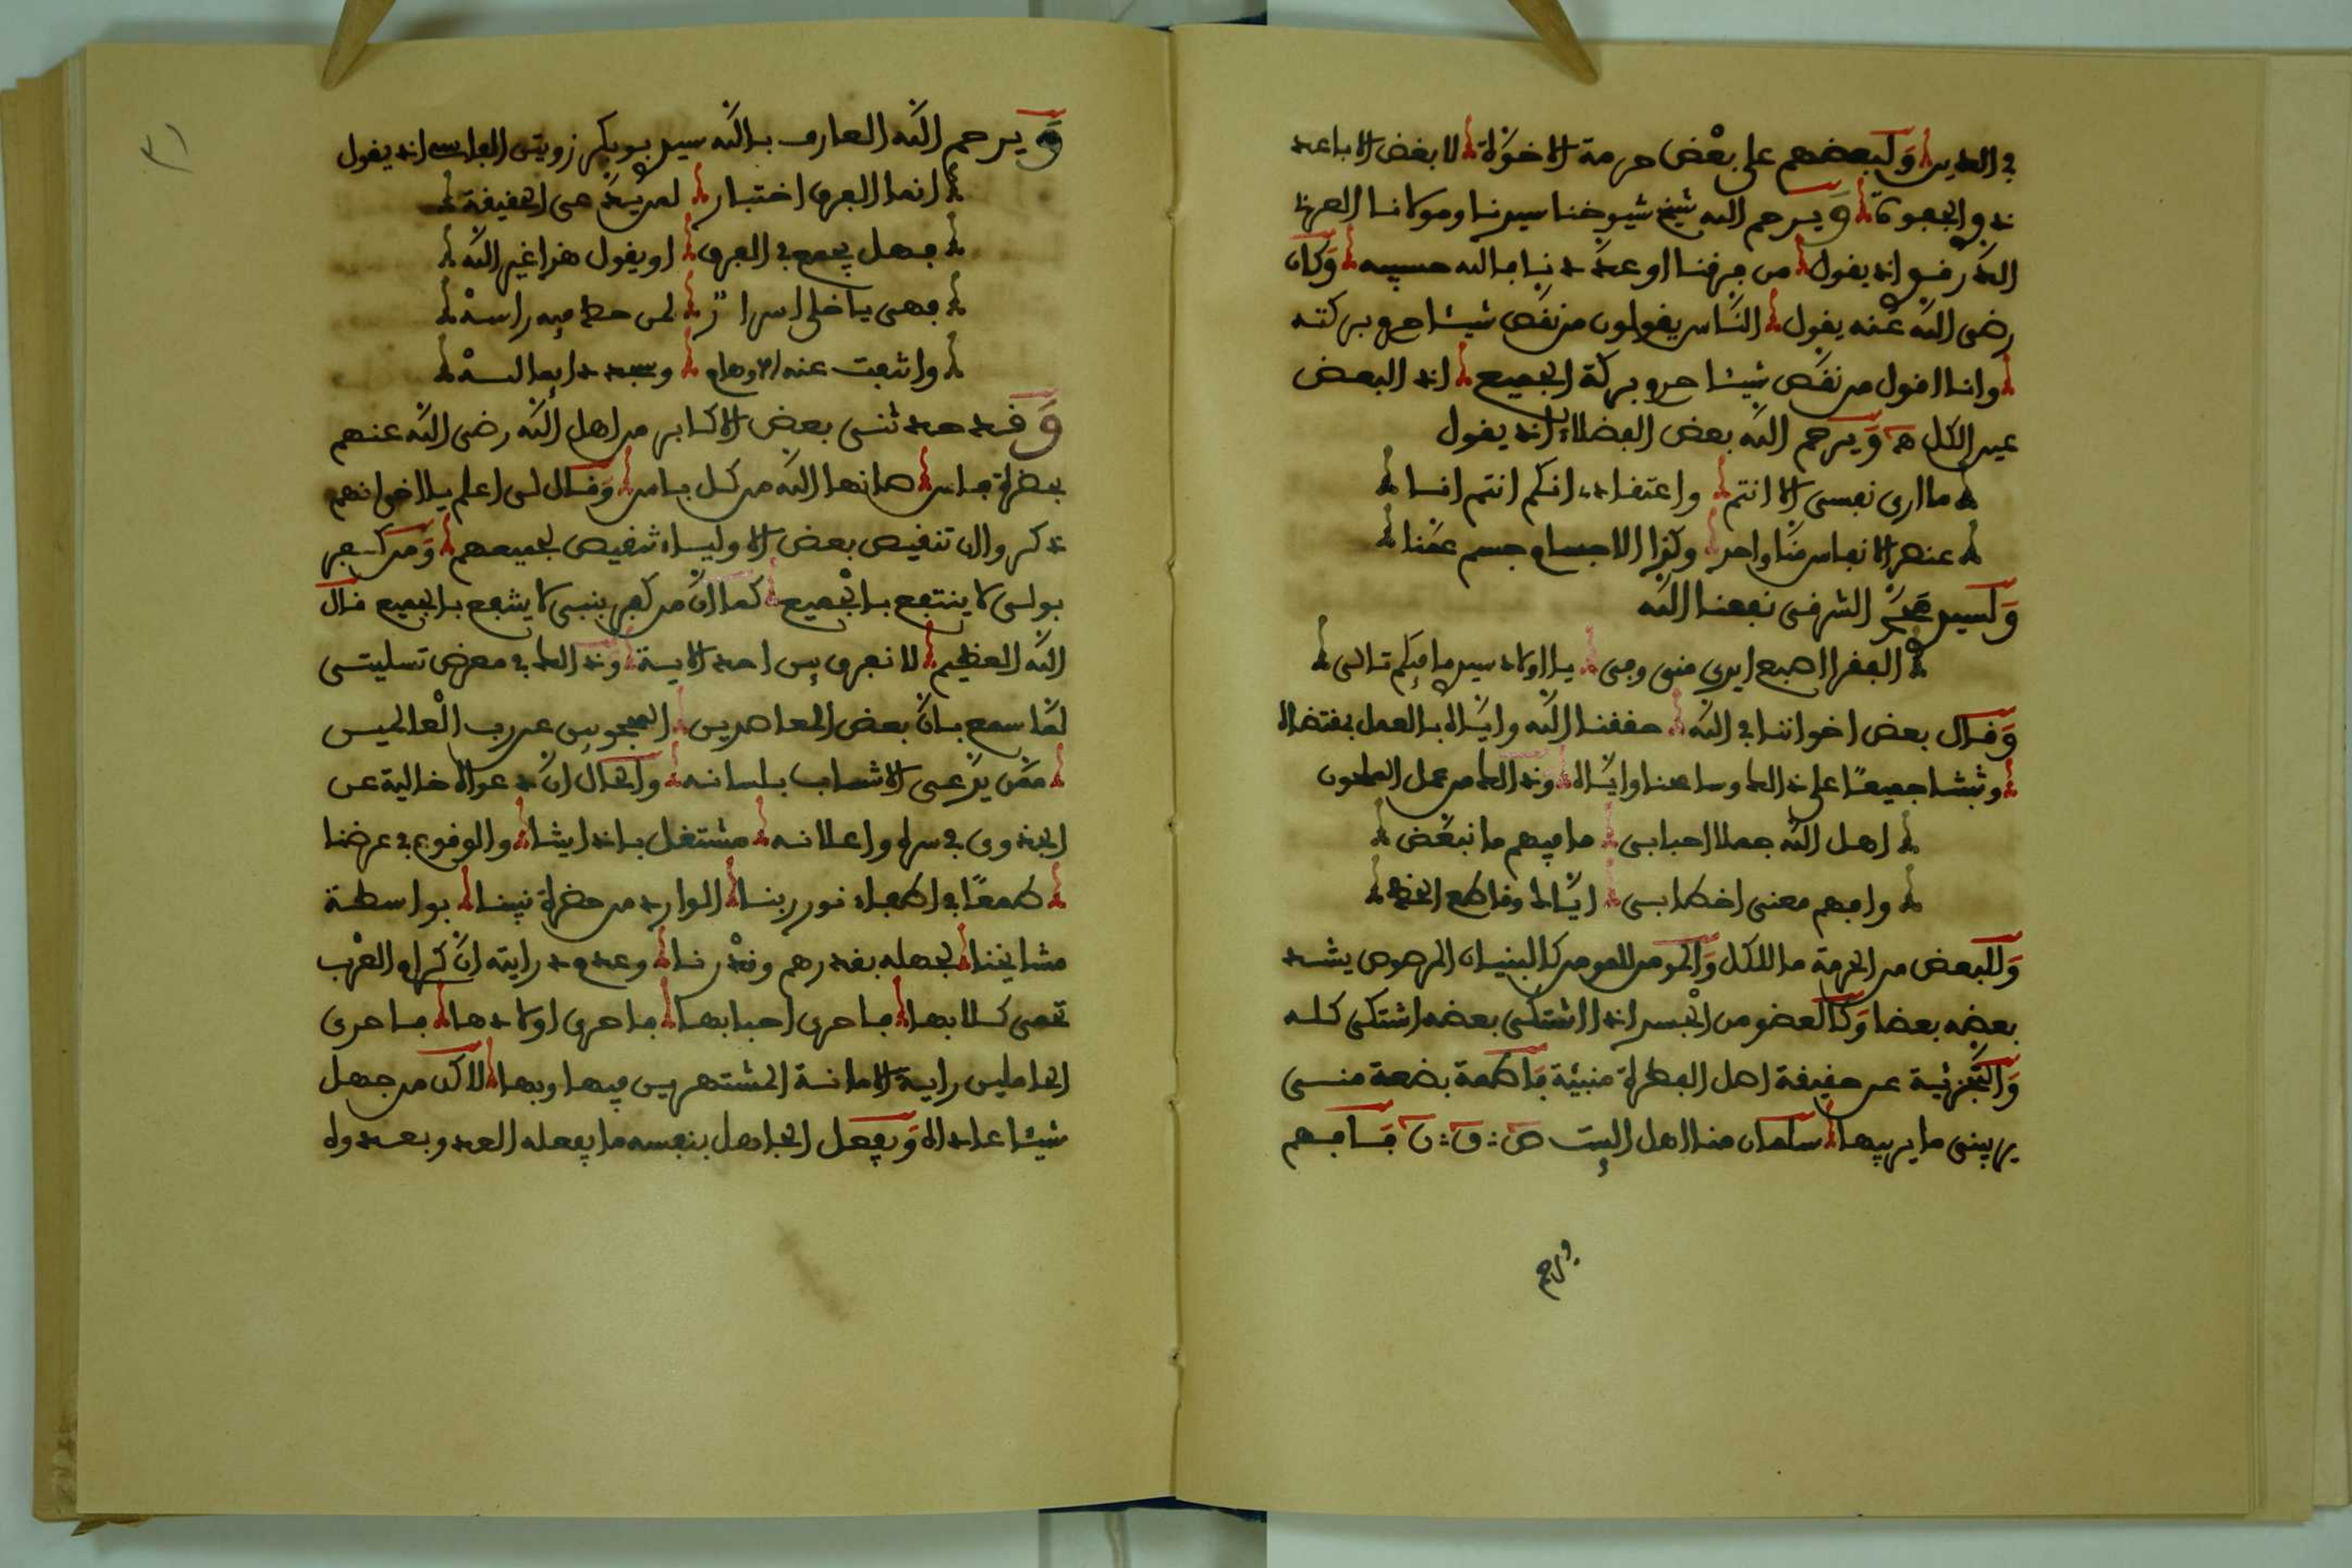 في الدين ولبعضهم على بعض حرمة الاخوة لا بغض الاباعد
ذو الجفوة ويرحم الله شيخ شيوخنا سيدنا ومولانا العربي
الدرقوي اذ يقول من فرقنا او عددنا فالله حسيبه وكان
رضي الله عنه يقول الناس يقولون من نقص شيئا حرم بركته
وانا اقول من نقص شيئا حرم بركة الجميع اذ البعض
عين الكل هـ ويرحم الله بعض الفضلاء اذ يقول
ما ارى نفسي الا انتم واعتقادي انكم انتم انا
عنصر الانفاس منا واحد وكذا الاجسام جسم عمنا
ولسيدي محمد الشرقي نفعنا الله
الفقرا اصبع ايدي مني وفي يا اولاد سيدي ما فيكم تالي
وقال بعض اخواننا في الله حققنا الله واياه بالعمل بمقتضاه
وثبتنا جميعا على ذلك وساعنا واياه وذلك من عمل الملحون
اهل الله جملا احبابي ما فيهم ما نبغض
وافهم معنى اخطابي اياك وقاطع الخيط
وللبعض من الحرمة ما للكل والمومن للمومن كالبنيان المرصوص يشد
بعضه بعضا وكالعضو من الجسد اذا اشتكى بعضه اشتكى كله
والتجزئية عن حقيقة اهل الفطرة منبئة فاطمة بضعة مني
يريبني ما يريبها سلمان منا اهل البيت ص ق ن فافهم
ويرحم
ويرحم الله العارف بالله سيدي بوبكر زويتن الفاسي اذ يقول
انما الفرق اختبار لمريد هي الحقيقة
فهل يجمع في الفرق او يقول هذا غير الله
فهي يا خلي اسرار لمن حط فيه راسه
وانتفت عنه الاوهام وسجد دايما لسه
وقد حدثني بعض الاكابر من اهل الله رضي الله عنهم
بحضرة فاس صانها الله من كل باس وقال لي اعلم يا اخي انهم
ذكروا ان تنقيص بعض الاولياء تنقيص لجميعهم ومن كفر
بولي لا ينتفع بالجميع كما ان من كفر بنبي لا يشفع بالجميع قال
الله العظيم لا نفرق بين احد الاية وذلك في معرض تسليتي
لما سمع بان بعض المعاصرين المحجوبين عن رب العالمين
ممن يدعي الانتساب بلسانه والحال ان دعواه خالية عن
الخدوى في سره واعلانه مشتغل باذايتنا والوقوع في عرضنا
طمعا في اطفاء نور ربنا الوارد من حضرة نبينا بواسطة
مشايخنا لجهله بقدرهم وقدرنا وعدم درايته ان كرام العرب
تحمي كلابها فاحرى احبابها فاحرى اولادها فاحرى
الحاملين راية الامانة المشتهرين فيها وبها لاكن من جهل
شيئا عاداه ويفعل الجاهل بنفسه ما يفعله العدو بعدوه